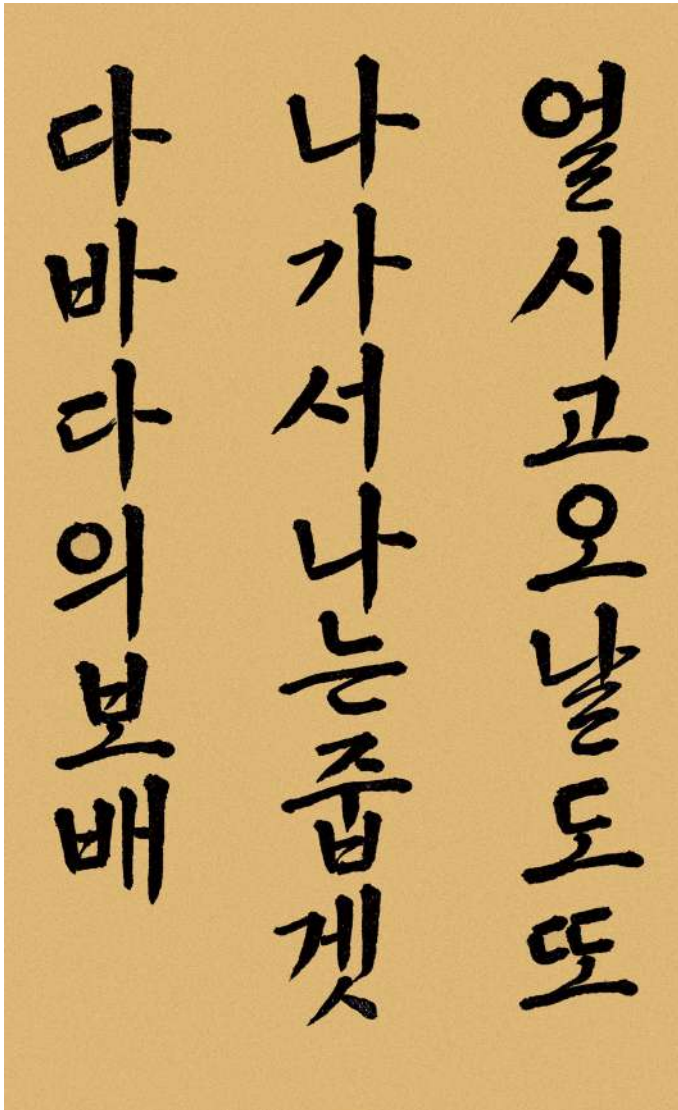 얼시고오날도또
나가서나는줍겟
다바다의보배